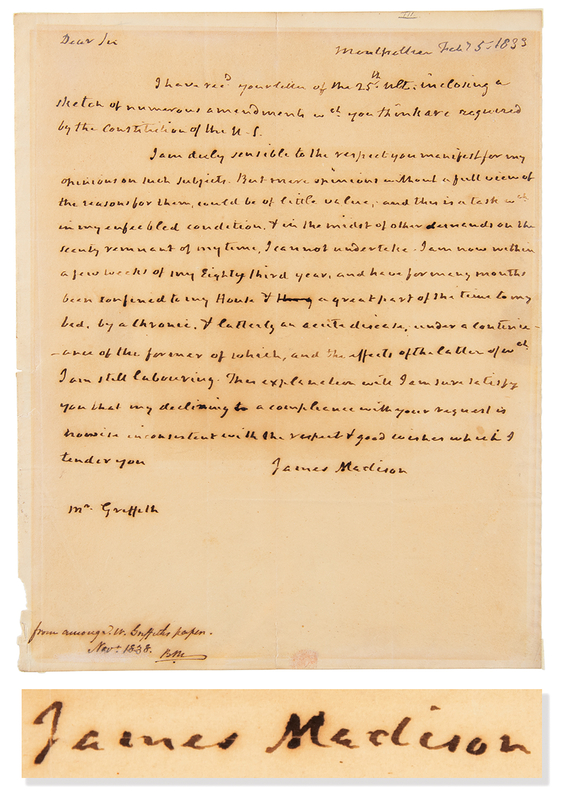 Dear Sir
Montpellier Feby 5. 1833
I have recd. your letter of the 25th Ult: inclosing a
sketch of numerous amendments wch you think are required
by the Constitution of the U. S.
I am duly sensible to the respect you manifest for my
opinions on such subjects. But mere opinions without a full view of
the reasons for them, could be of little value; and this is a task wch
in my enfeebled condition, & in the midst of other demands on the
scanty remnant of my time, I cannot undertake. I am now within
a few weeks of my Eighty third year, and have for many months
been confined to my House & a great part of the time to my
bed, by a chronic, & latterly an acute disease, under a continu-
-ance of the former of which, and the effects of the latter of wch
I am still labouring. This explanation will I am sure satisfy
you that my declining a compliance with your request is
nowise inconsistent with the respect & good wishes which I
tender you
James Madison
Mr. Griffith
from among W. Griffith's papers.
Novr. 1838.
James Madison